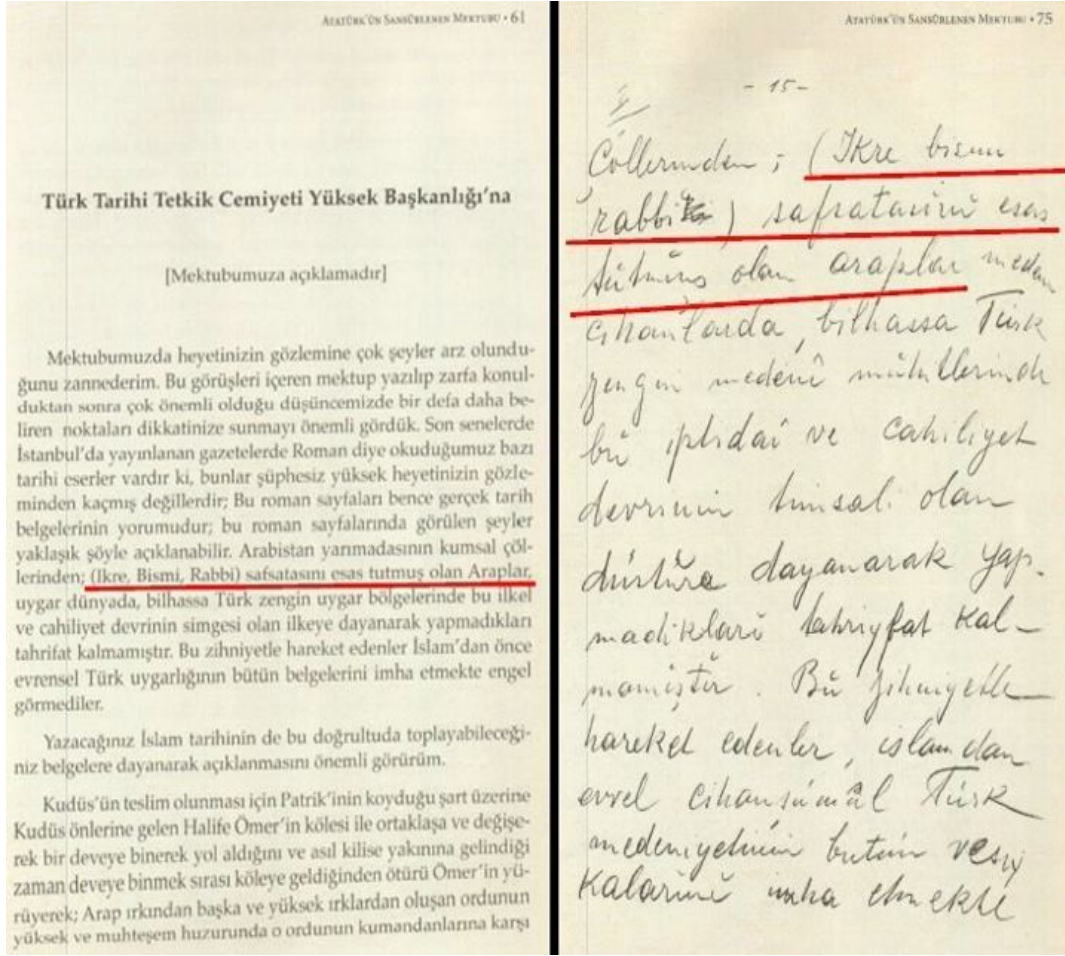 ATATÜRK'ÜN SANSÜRLENEN MEKTUBU • 61
Türk Tarihi Tetkik Cemiyeti Yüksek Başkanlığı'na
[Mektubumuza açıklamadır]
Mektubumuzda heyetinizin gözlemine çok şeyler arz olundu-
ğunu zannederim. Bu görüşleri içeren mektup yazılıp zarfa konul-
duktan sonra çok önemli olduğu düşüncemizde bir defa daha be-
liren noktaları dikkatinize sunmayı önemli gördük. Son senelerde
İstanbul'da yayınlanan gazetelerde Roman diye okuduğumuz bazı
tarihi eserler vardır ki, bunlar şüphesiz yüksek heyetinizin gözle-
minden kaçmış değillerdir; Bu roman sayfaları bence gerçek tarih
belgelerinin yorumudur; bu roman sayfalarında görülen şeyler
yaklaşık şöyle açıklanabilir. Arabistan yarımadasının kumsal çöl-
lerinden; (Ikre, Bismi, Rabbi) safsatasını esas tutmuş olan Araplar,
uygar dünyada, bilhassa Türk zengin uygar bölgelerinde bu ilkel
ve cahiliyet devrinin simgesi olan ilkeye dayanarak yapmadıkları
tahrifat kalmamıştır. Bu zihniyetle hareket edenler İslam'dan önce
evrensel Türk uygarlığının bütün belgelerini imha etmekte engel
görmediler.
Yazacağınız İslam tarihinin de bu doğrultuda toplayabileceği-
niz belgelere dayanarak açıklanmasını önemli görürüm.
Kudüs'ün teslim olunması için Patrik'inin koyduğu şart üzerine
Kudüs önlerine gelen Halife Ömer'in kölesi ile ortaklaşa ve değişe-
rek bir deveye binerek yol aldığını ve asıl kilise yakınına gelindiği
zaman deveye binmek sırası köleye geldiğinden ötürü Ömer'in yü-
rüyerek; Arap ırkından başka ve yüksek ırklardan oluşan ordunun
yüksek ve muhteşem huzurunda o ordunun kumandanlarına karşı
ATATÜRK'ÜN SANSÜRLENEN MEKTUBU • 75
- 15 -
Çöllerinden; (Ikre bismi
rabbi) safsatasını esas
tutmuş olan araplar meden
cihanlarda, bilhassa Türk
zengin medenî muhitlerinde
bu iptidaî ve cahiliyet
devrinin timsali olan
düstüra dayanarak yap-
madıkları tahriyfat kal-
mamıştır. Bu zihniyetle
hareket edenler, islamdan
evvel cihanşümûl Türk
medeniyetinin bütün vesi
kalarını imha etmekte